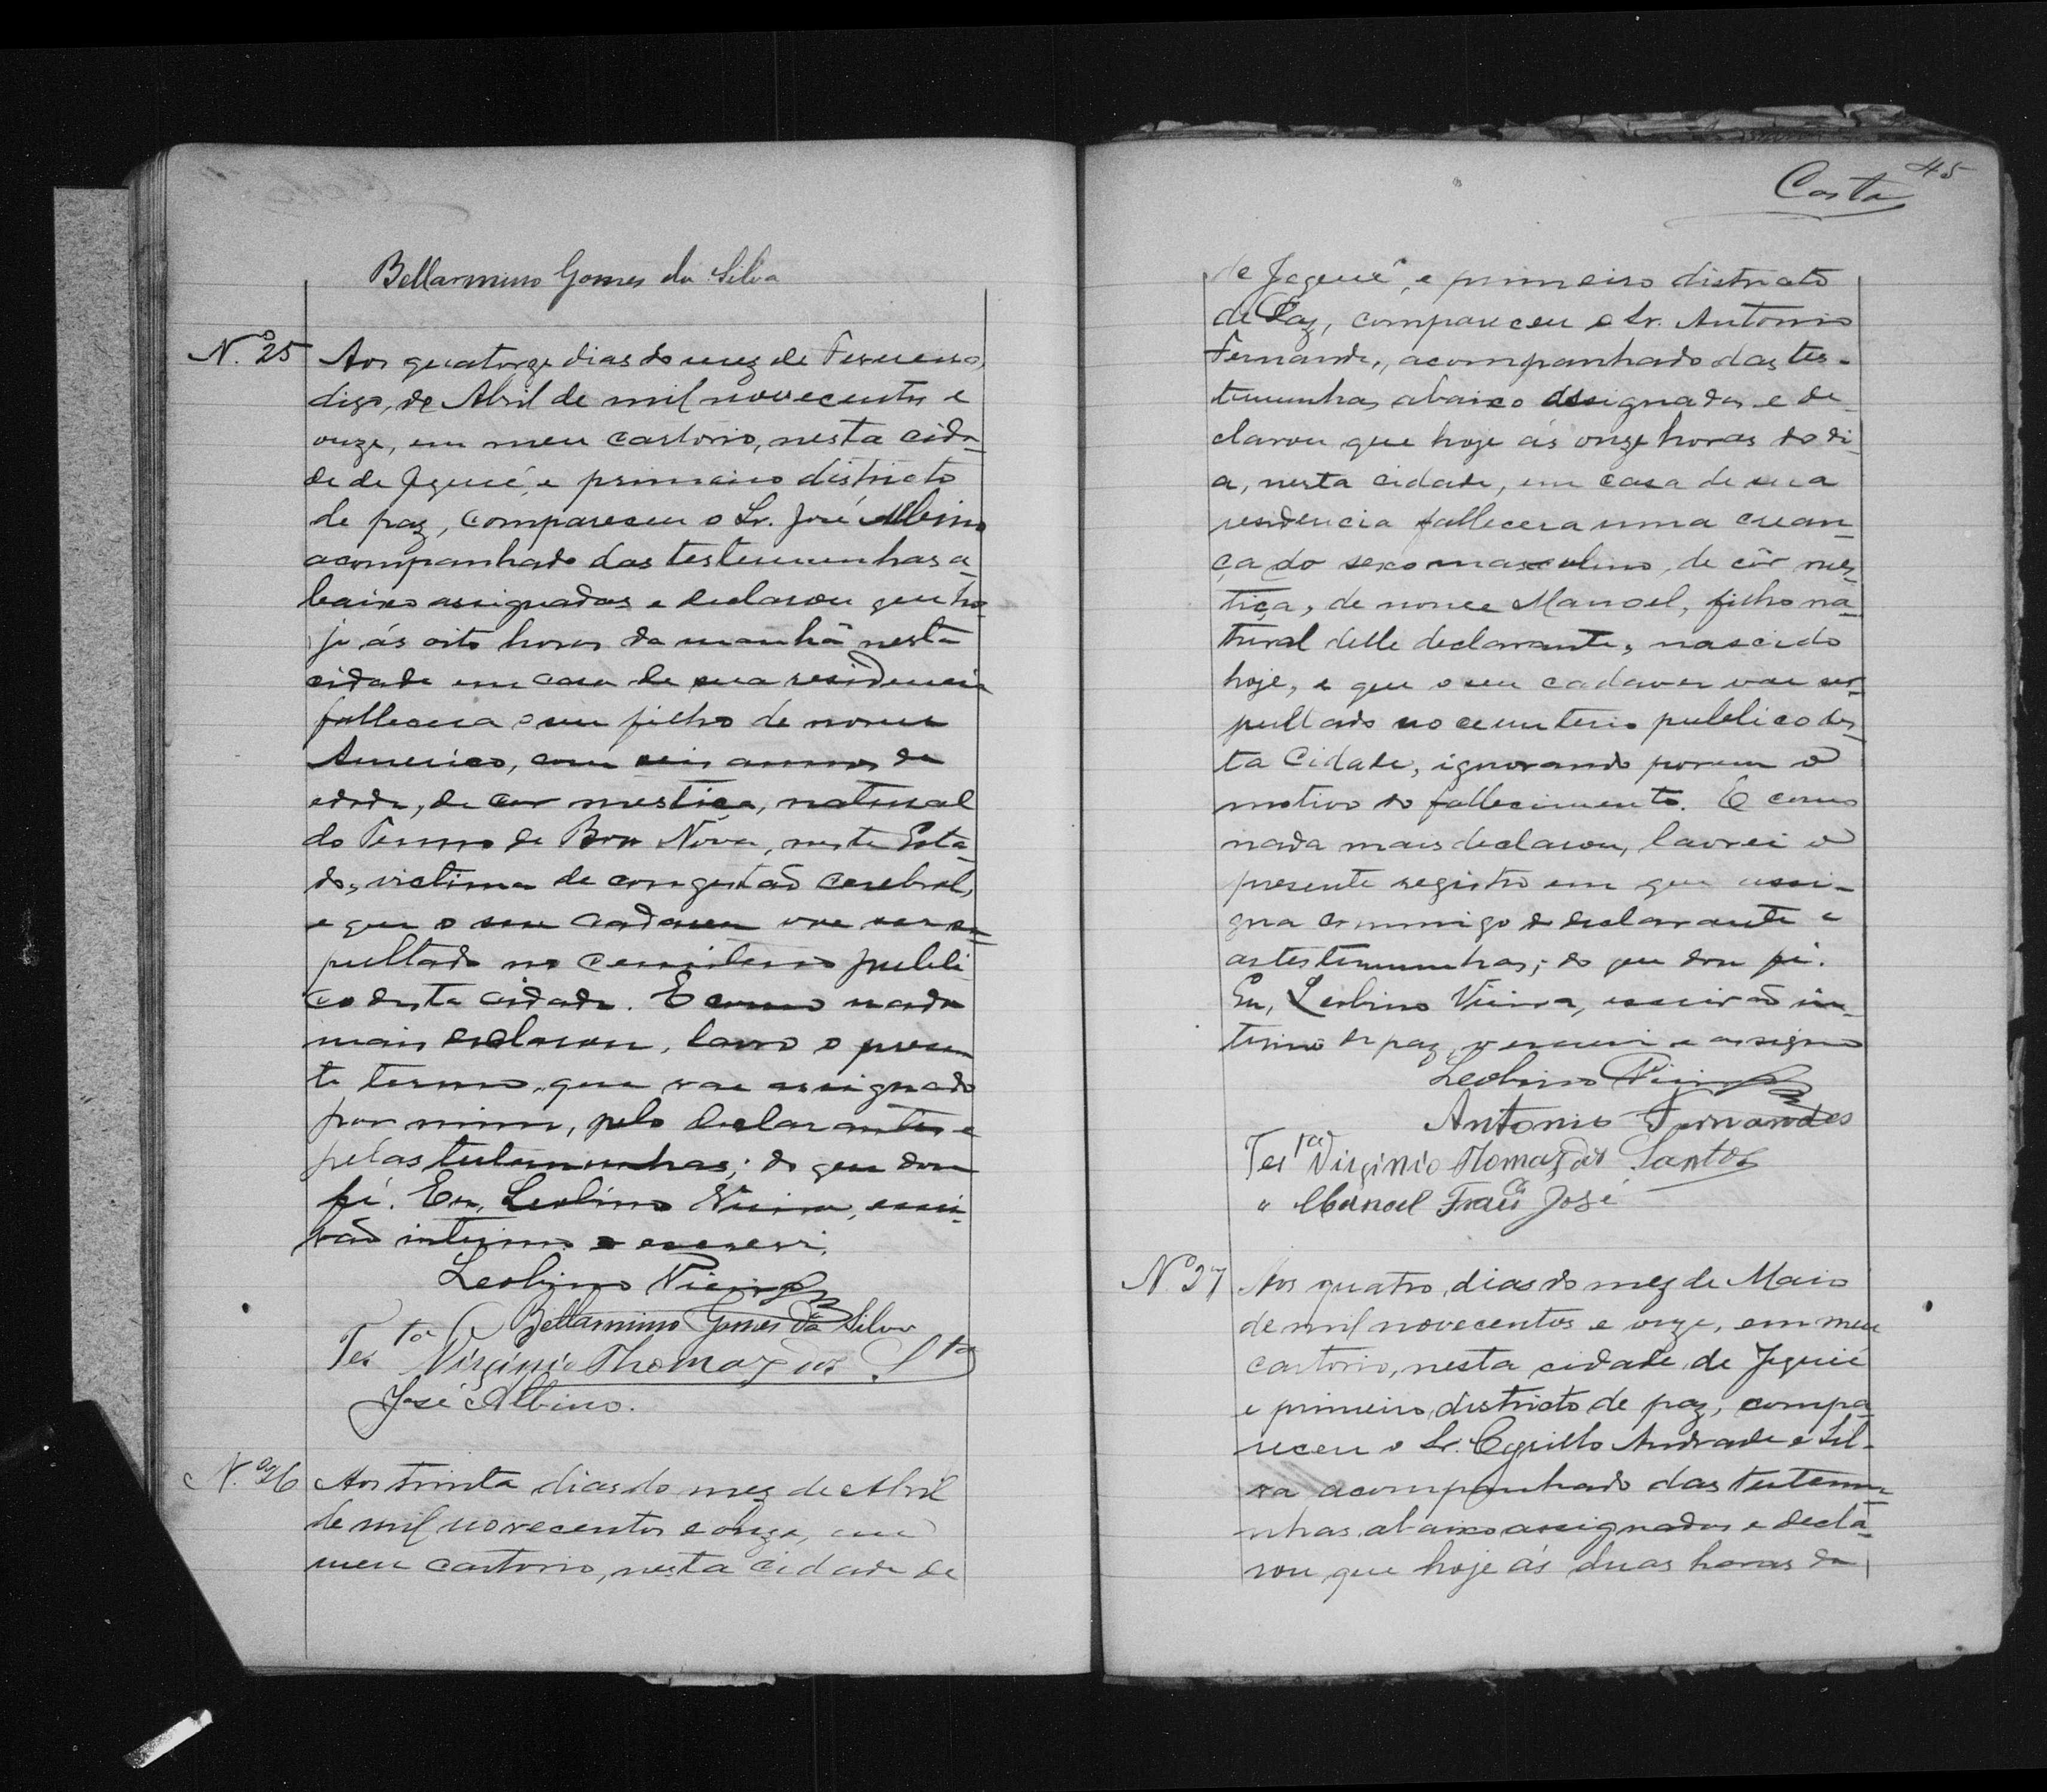 Bellarmino Gomes da Silva
N.º 25
Aos quatorze dias do mez de Fevereiro,
digo, de Abril de mil novecentos e
onze, em meu cartorio, nesta cida-
de de Jequié, e primeiro districto
de paz, compareseu o Sr. José Albino
acompanhado das testemunhas a-
baixo assignadas e declarou que ho-
je ás oito horas da manhã nesta
cidade em casa de sua residencia
fallecera o seu filho de nome
Americo, com seis annos de
edade, de cor mestiça, natural
do Termo de Bôa Nova, neste Esta-
do, victima de congestão cerebral,
e que o seu cadaver vae ser se-
pultado no cemiterio publi
co desta cidade. E como nada
mais declarou, lavro o presen
te termo, que vae assignado
por mim, pelo declarante e
pelas testemunhas; do que dou
fé. Eu, Leolino Vieira, escri-
vão interino o escrevi.
Leolino Vieira
Bellarmino Gomes da Silva
Testa Virginio Thomaz dos Sta
José Albino.
N.º 26
Aos trinta dias do mez de Abril
de mil novecentos e onze, em
meu cartorio, nesta cidade de
45
Costa
de Jequié, e primeiro districto
de Paz, compareceu o Sr. Antonio
Fernande, acompanhado das tes-
temunhas abaixo assignadas e de-
clarou que hoje ás onze horas do di-
a, nesta cidade, em casa de sua
residencia fallecera uma crean-
ça do sexo masculino, de côr mes-
tiça, de nome Manoel, filho na-
tural delle declarante, nascido
hoje, e que o seu cadaver vae ser
pultado no cemiterio publico des-
ta Cidade, ignorando porem o
motivo do fallecimento. E como
nada mais declarou, lavrei o
presente registro em que assi-
gna commigo o declarante e
as testemunhas; do que dou fé.
Eu, Leolino Vieira, escrivão in-
terino de paz, o escrevi e assigno
Leolino Vieira
Antonio Fernandes
Testa Virginio Thomaz dos Santos
" Manoel Franco José
Nº 27
Aos quatro dias do mez de Maio
de mil novecentos e onze, em meu
cartorio, nesta cidade de Jequié
e primeiro districto de paz, compa-
receu o Sr. Cyrillo Andrade e Sil-
va acompanhado das testemu-
nhas abaixo assignadas e decla-
rou que hoje ás duas horas da